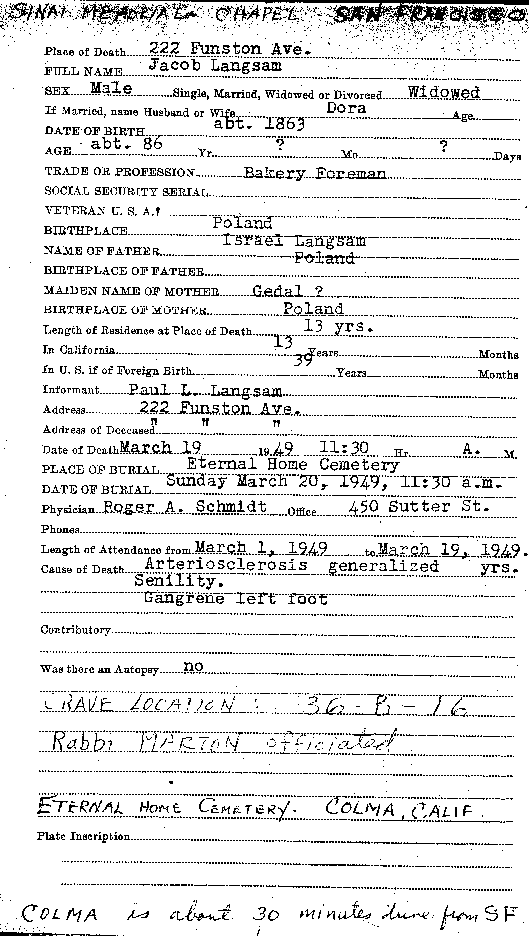 SINAI MEMORIAL CHAPEL - SAN FRANCISCO
Place of Death 222 Funston Ave.
FULL NAME Jacob Langsam
SEX Male Single, Married, Widowed or Divorced Widowed
If Married, name Husband or Wife Dora Age
DATE OF BIRTH abt. 1863
AGE abt. 86 Yr. ? Mo. ? Days
TRADE OR PROFESSION Bakery Foreman
SOCIAL SECURITY SERIAL
VETERAN U. S. A.?
BIRTHPLACE Poland
NAME OF FATHER Israel Langsam
BIRTHPLACE OF FATHER Poland
MAIDEN NAME OF MOTHER Gedal ?
BIRTHPLACE OF MOTHER Poland
Length of Residence at Place of Death 13 yrs.
In California 13 Years Months
In U. S. if of Foreign Birth 39 Years Months
Informant Paul L. Langsam
Address 222 Funston Ave.
Address of Deceased " " "
Date of Death March 19 1949 11:30 Hr. A. M.
PLACE OF BURIAL Eternal Home Cemetery
DATE OF BURIAL Sunday March 20, 1949, 11:30 a.m.
Physician Roger A. Schmidt Office 450 Sutter St.
Phones
Length of Attendance from March 1, 1949 to March 19, 1949.
Cause of Death Arteriosclerosis generalized yrs.
Senility.
Gangrene left foot
Contributory
Was there an Autopsy no
GRAVE LOCATION: 36-B-16
Rabbi MARTON officiated
ETERNAL HOME CEMETERY. COLMA, CALIF.
Plate Inscription
COLMA is about 30 minutes drive from SF